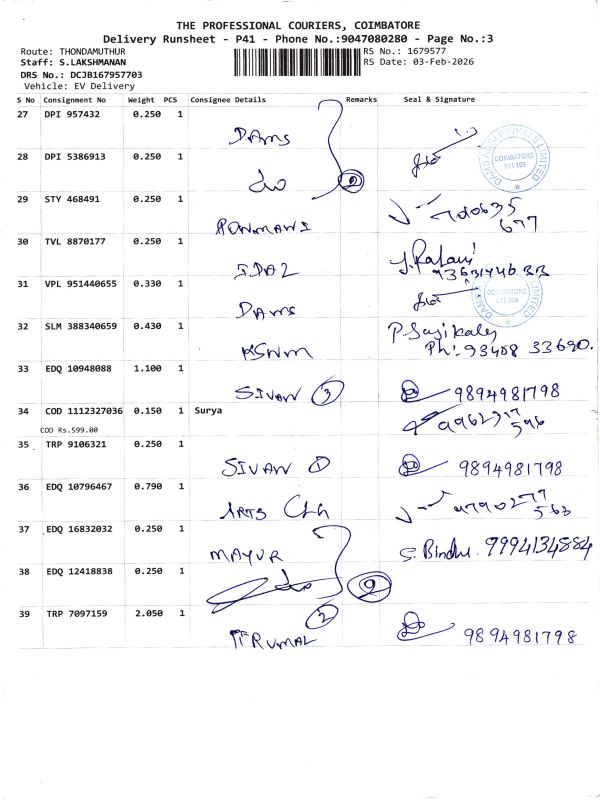 THE PROFESSIONAL COURIERS, COIMBATORE
Delivery Runsheet - P41 - Phone No.:9047080280 - Page No.:3
Route: THONDAMUTHUR RS No.: 1679577
Staff: S.LAKSHMANAN RS Date: 03-Feb-2026
DRS No.: DCJB167957703
Vehicle: EV Delivery
S No Consignment No Weight PCS Consignee Details Remarks Seal & Signature
27 DPI 957432 0.250 1
DAMS
28 DPI 5386913 0.250 1
2
COIMBATORE
641 109
29 STY 468491 0.250 1
PONMANI
677
30 TVL 8870177 0.250 1
IDAL
31 VPL 951440655 0.330 1
DAMS
COIMBATORE
641 109
32 SLM 388340659 0.430 1
KSWM
P. Sasikala
Ph: 93408 33690.
33 EDQ 10948088 1.100 1
SIVAN 3 9894981798
34 COD 1112327036 0.150 1 Surya
COD Rs.599.00
596
35 TRP 9106321 0.250 1
SIVAN 1 9894981798
36 EDQ 10796467 0.790 1
ARTS
563
37 EDQ 16832032 0.250 1
MAYUR S. Bindhu. 9994134884
38 EDQ 12418838 0.250 1
2
39 TRP 7097159 2.050 1
2
TIRUMAL 9894981798